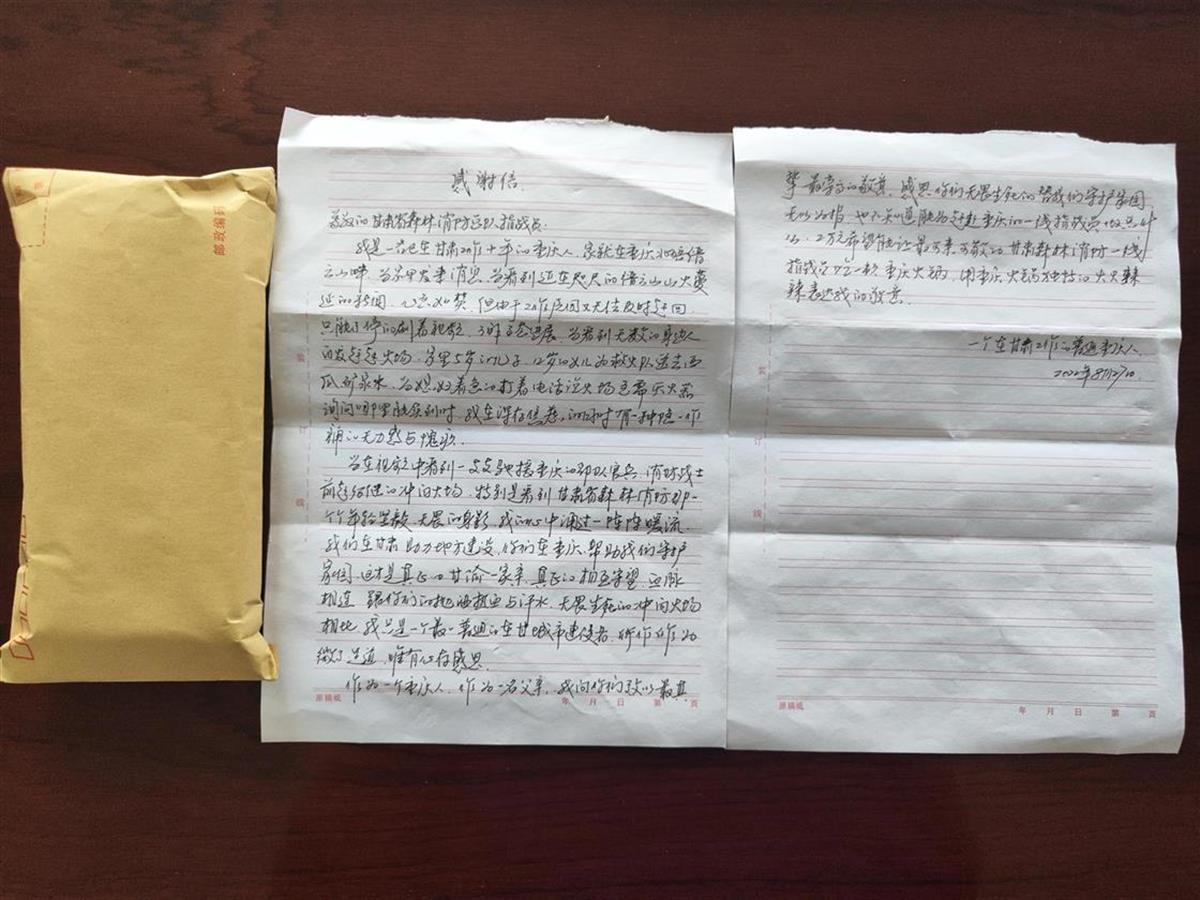 邮政编码
感谢信
尊敬的甘肃省森林消防总队指战员:
我是一名已在甘肃工作十年的重庆人,家就在重庆北碚缙
云山畔,当家里发来消息,当看到近在咫尺的缙云山山火蔓
延的新闻,心急如焚,但由于工作原因又无法及时赶回
只能不停的刷着视频,了解了进展,当看到无数的身边人
出发赶赴火场,家里5岁的儿子,12岁的女儿为救火队送去西
瓜矿泉水,当媳妇着急的打着电话说火场急需灭火器
询问哪里能买到时,我在深存焦急的同时有一种隐隐作
痛的无力感与愧疚。
当在视频中看到一支支驰援重庆的部队官兵,消防战士
前赴后继的冲向火场,特别是看到甘肃省森林消防那一
个个年轻坚毅、无畏的身影,我的心中涌过一阵阵暖流,
我们在甘肃助力地方建设,你们在重庆,帮助我们守护
家园,这才是真正的甘渝一家亲,真正的相互守望,血脉
相连,跟你们的抛洒热血与汗水,无畏生死的冲向火场
相比,我只是一个最普通的在甘城市建设者,所作所为
微不足道,唯有心存感恩。
作为一个重庆人,作为一名父亲,我向你们致以最真
原稿纸 年 月 日 第 页
装
订
线
挚最崇高的敬意,感恩你们无畏生死的替我们守护家园,
无以为报,也不知道能为赶赴重庆的一线指战员做点什
么,2万元希望能让最可亲可敬的甘肃森林消防一线
指战员吃一顿重庆火锅,用重庆火锅独特的火火辣
辣表达我的敬意。
一个在甘肃工作的普通重庆人
2022年8月27日
装
订
线
原稿纸 年 月 日 第 页